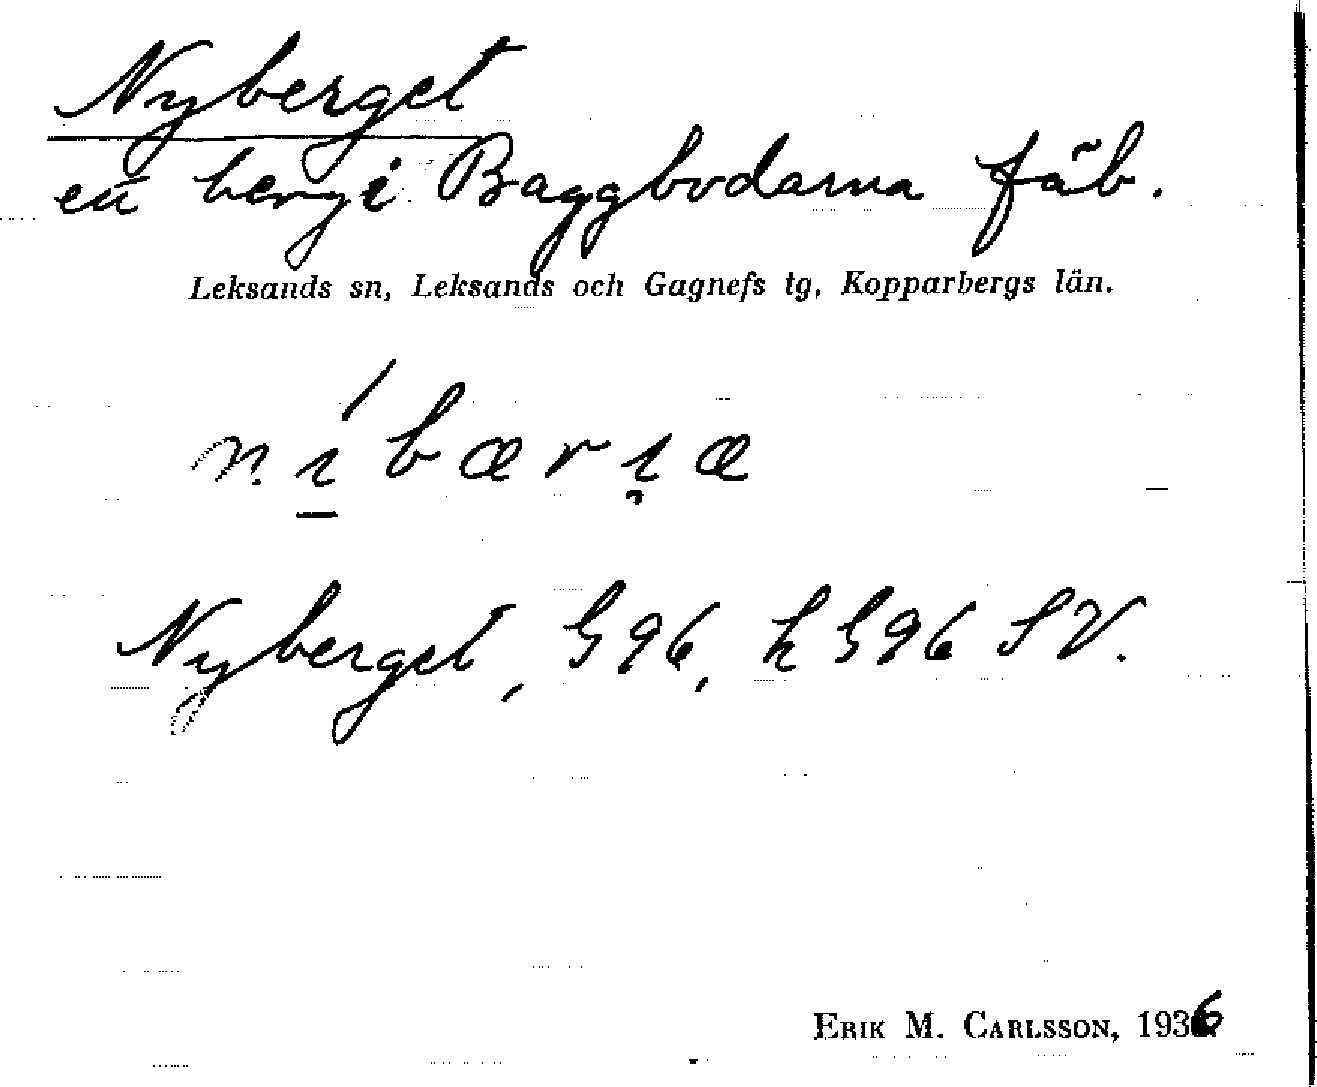 Nyberget
en berg i Baggbodarna fäb.
Leksands sn, Leksands och Gagnefs tg, Kopparbergs län.
níbærıæ
Nyberget, G96, h G96 SV.
ERIK M. CARLSSON, 1936